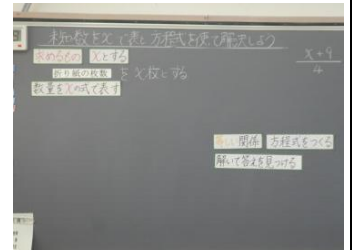 未知数をxで表し方程式を使って解決しよう
求めるもの xとする
折り紙の枚数 をx枚とする
数量をxの式で表す
x+9
4
等しい関係 方程式をつくる
解いて答えを見つける